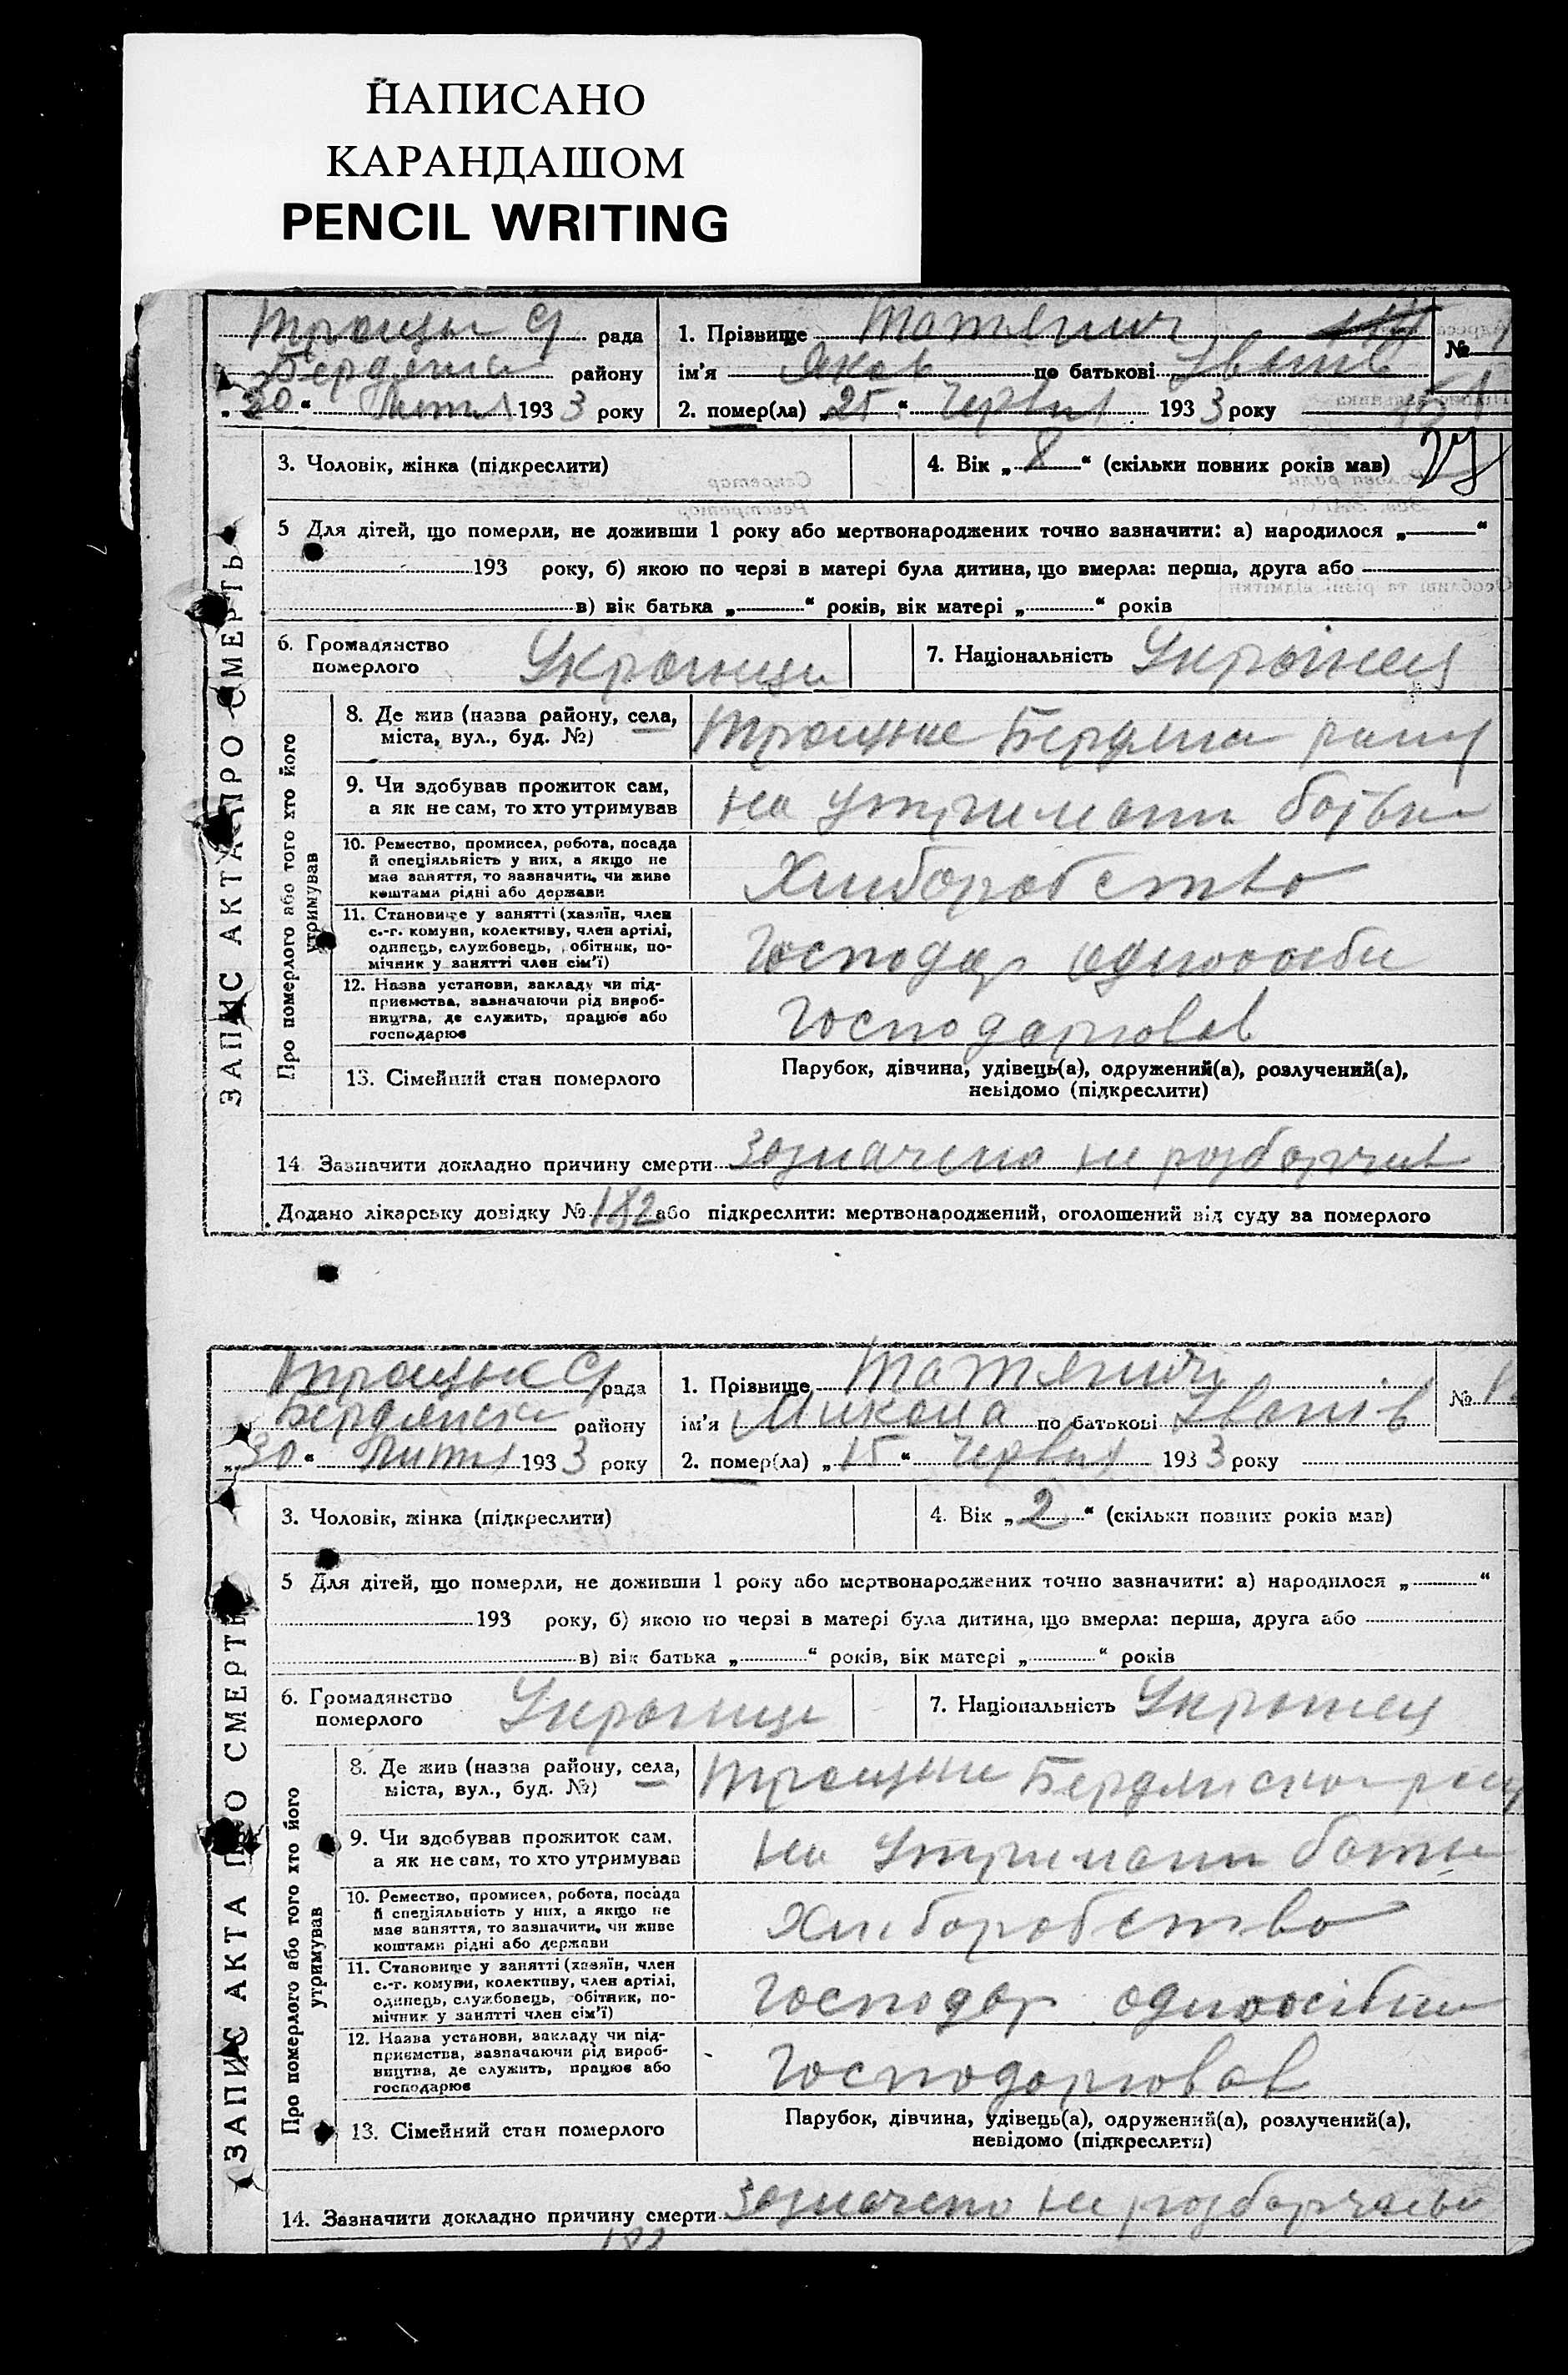 НАПИСАНО
КАРАНДАШОМ
PENCIL WRITING
рада
району
„30“ 1933 року
1. Прізвище
ім'я Яков по батькові Іванів
2. помер(ла) „25“ Червня 1933 року
№
3. Чоловік, жінка (підкреслити)
4. Вік „8“ (скільки повних років мав)
5 Для дітей, що померли, не доживши 1 року або мертвонароджених точно зазначити: а) народилося „ “
193 року, б) якою по черзі в матері була дитина, що вмерла: перша, друга або
в) вік батька „ “ років, вік матері „ “ років
6. Громадянство
померлого
7. Національність Українец
ЗАПИС АКТА ПРО СМЕРТЬ
Про померлого або того хто його
утримував
8. Де жив (назва району, села,
міста, вул., буд. №)
9. Чи здобував прожиток сам,
а як не сам, то хто утримував
на утримани
10. Ремество, промисел, робота, посада
й спеціяльність у них, а якщо не
має заняття, то зазначити, чи живе
коштами рідні або держави
Хлиборобство
11. Становище у занятті (хазяїн, член
с.-г. комуни, колективу, член артілі,
одинець, службовець, обітник, по-
мічник у занятті член сім'ї)
Господар
12. Назва установи, закладу чи під-
приємства, зазначаючи рід вироб-
ництва, де служить, працює або
господарює
Господарював
13. Сімейний стан померлого
Парубок, дівчина, удівець(а), одружений(а), розлучений(а),
невідомо (підкреслити)
14. Зазначити докладно причину смерти зазначено не
Додано лікарську довідку № 182 або підкреслити: мертвонароджений, оголошений від суду за померлого
рада
району
„30“ 1933 року
1. Прізвище
ім'я Микола по батькові Іванів
2. помер(ла) „15“ Червня 1933 року
№
3. Чоловік, жінка (підкреслити)
4. Вік „2“ (скільки повних років мав)
5 Для дітей, що померли, не доживши 1 року або мертвонароджених точно зазначити: а) народилося „ “
193 року, б) якою по черзі в матері була дитина, що вмерла: перша, друга або
в) вік батька „ “ років, вік матері „ “ років
6. Громадянство
померлого
7. Національність Українец
ЗАПИС АКТА ПРО СМЕРТЬ
Про померлого або того хто його
утримував
8. Де жив (назва району, села,
міста, вул., буд. №)
9. Чи здобував прожиток сам,
а як не сам, то хто утримував
на утримани
10. Ремество, промисел, робота, посада
й спеціяльність у них, а якщо не
має заняття, то зазначити, чи живе
коштами рідні або держави
Хлиборобство
11. Становище у занятті (хазяїн, член
с.-г. комуни, колективу, член артілі,
одинець, службовець, обітник, по-
мічник у занятті член сім'ї)
Господар
12. Назва установи, закладу чи під-
приємства, зазначаючи рід вироб-
ництва, де служить, працює або
господарює
Господорював
13. Сімейний стан померлого
Парубок, дівчина, удівець(а), одружений(а), розлучений(а),
невідомо (підкреслити)
14. Зазначити докладно причину смерти зазначено не
182